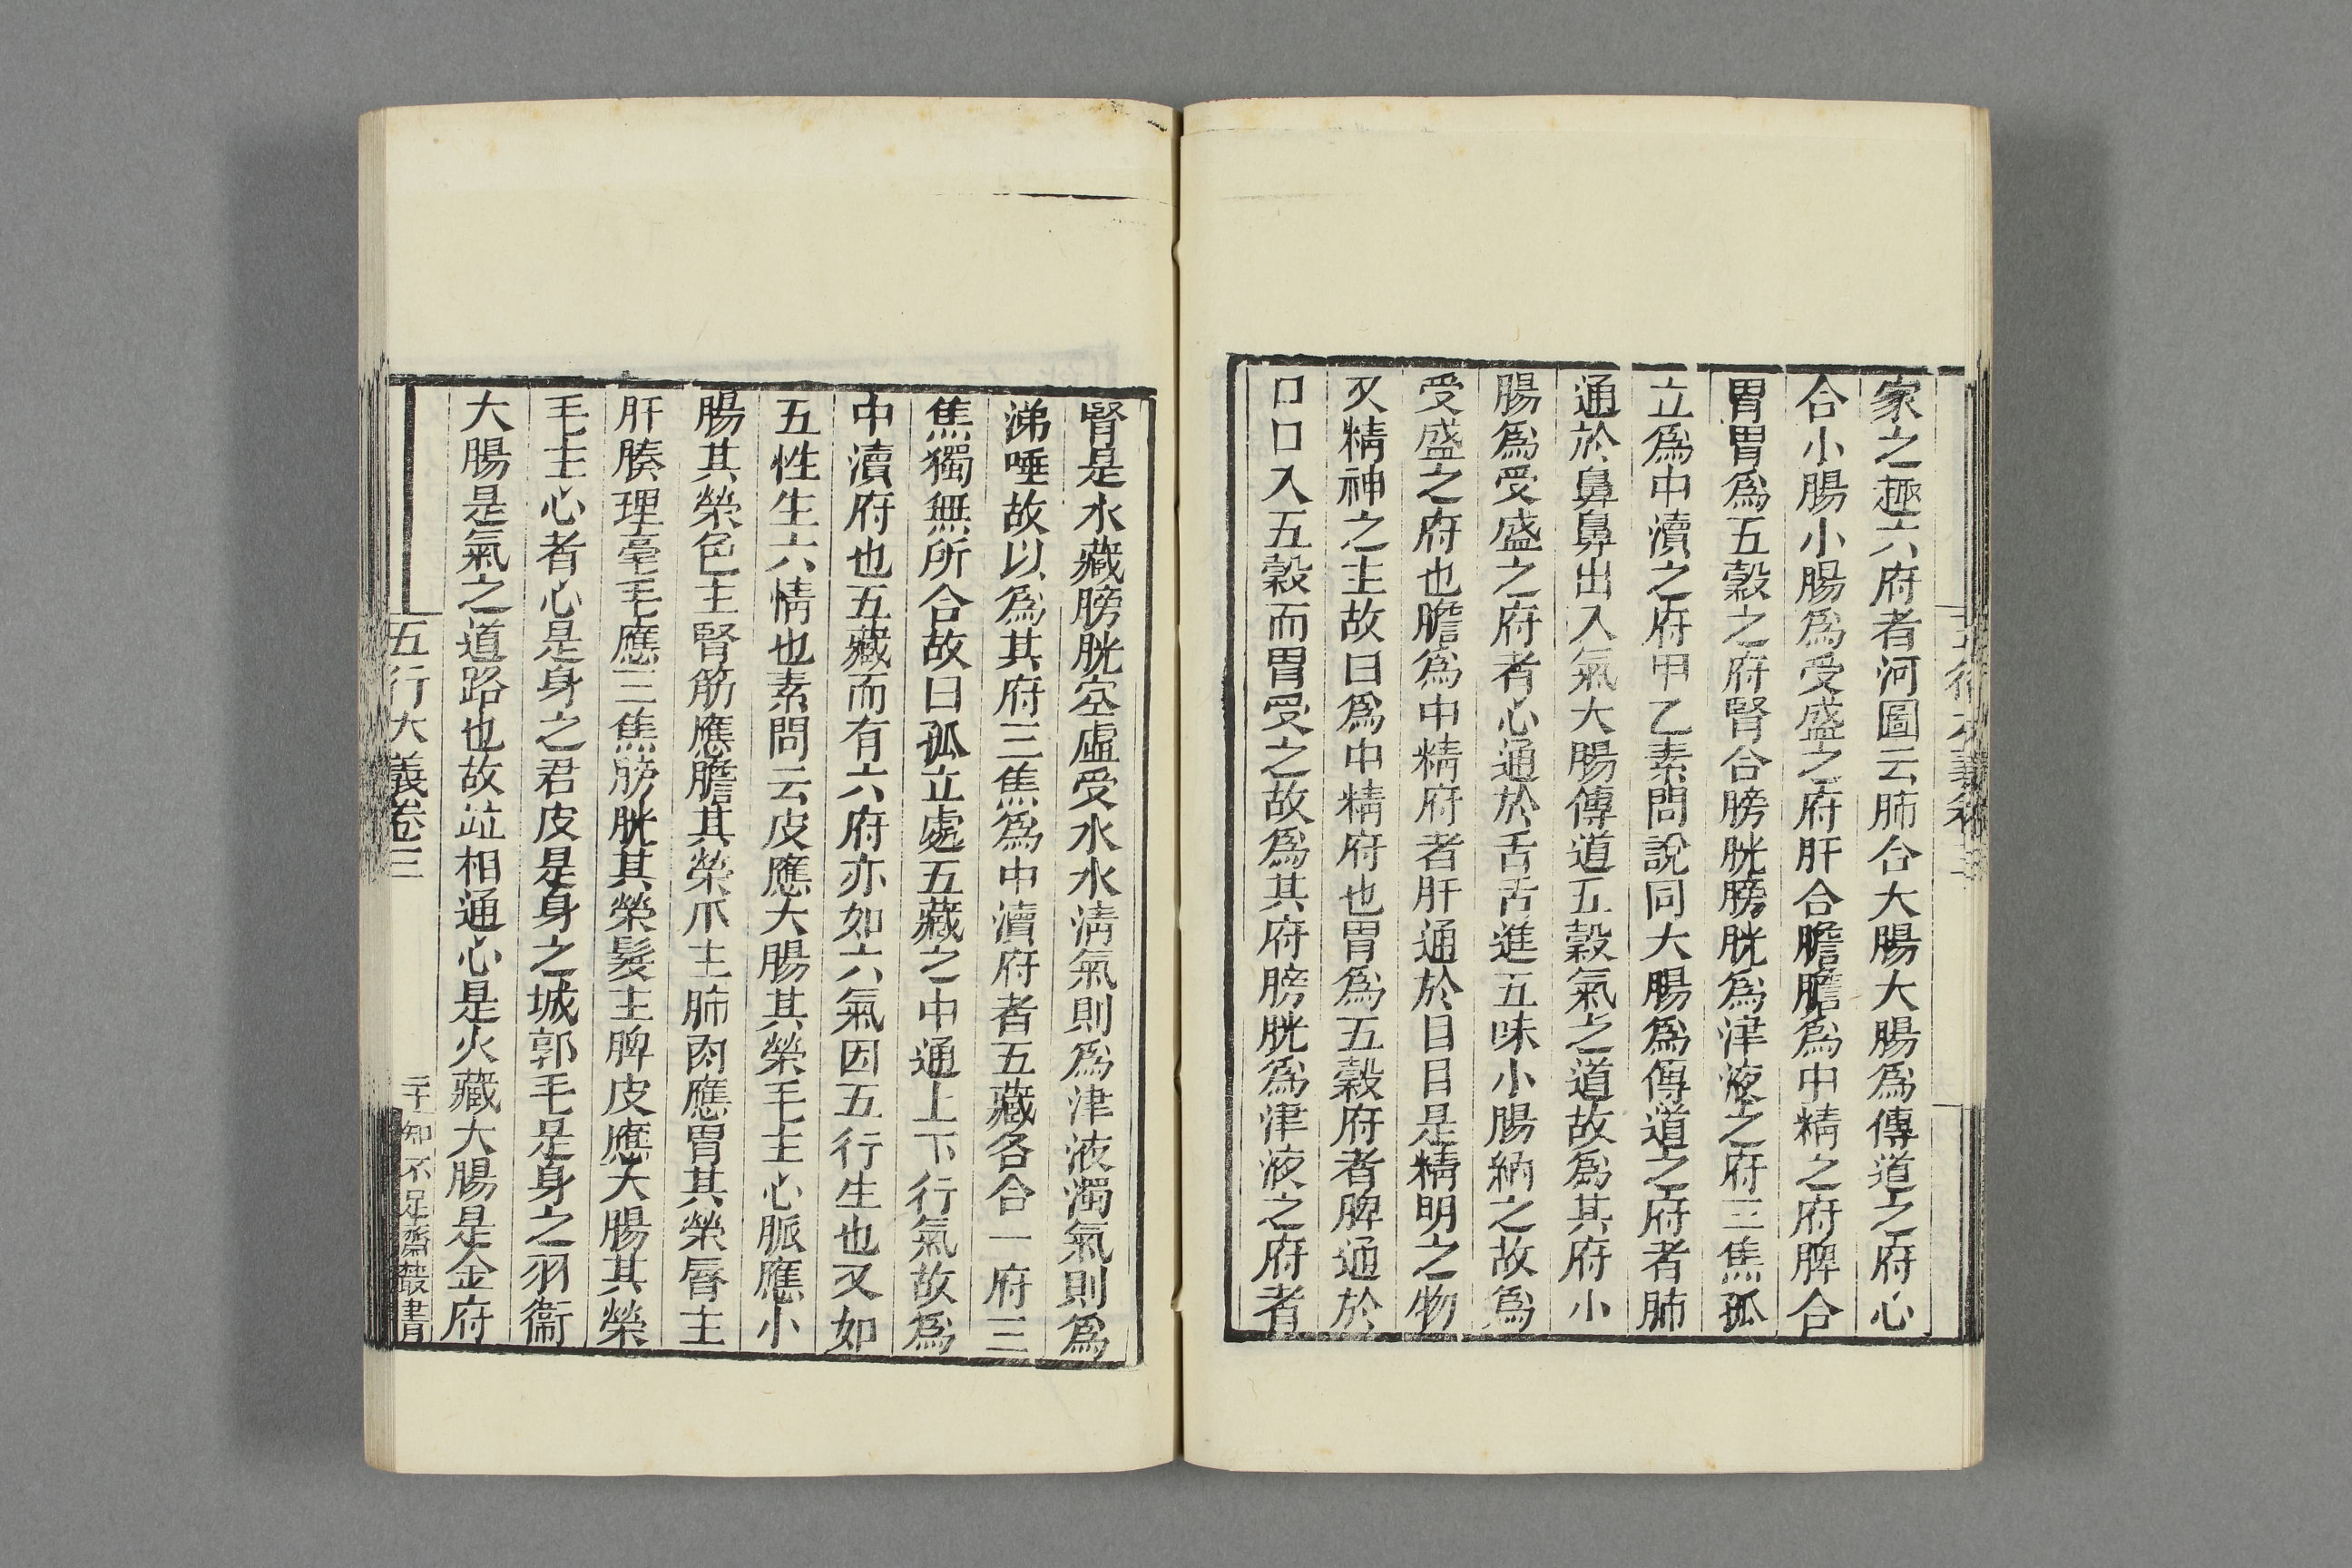 家之趣六府者河圖云肺合大腸大腸爲傳道之府心
合小腸小腸爲受盛之府肝合膽膽爲中精之府脾合
胃胃爲五穀之府腎合膀胱膀胱爲津液之府三焦孤
立爲中瀆之府甲乙素問說同大腸爲傳道之府者肺
通於鼻鼻出入氣大腸傳道五穀氣之道故爲其府小
腸爲受盛之府者心通於舌舌進五味小腸納之故爲
受盛之府也膽爲中精府者肝通於目目是精明之物
又精神之主故曰爲中精府也胃爲五穀府者脾通於
口口入五穀而胃受之故爲其府膀胱爲津液之府者
腎是水藏膀胱空虛受水水淸氣則爲津液濁氣則爲
涕唾故以爲其府三焦爲中瀆府者五藏各合一府三
焦獨無所合故曰孤立處五藏之中通上下行氣故爲
中瀆府也五藏而有六府亦如六氣因五行生也又如
五性生六情也素問云皮應大腸其榮毛主心脈應小
腸其榮色主腎筋應膽其榮爪主肺肉應胃其榮脣主
肝腠理毫毛應三焦膀胱其榮髮主脾皮應大腸其榮
毛主心者心是身之君皮是身之城郭毛是身之羽衞
大腸是氣之道路也故竝相通心是火藏大腸是金府
五行大義卷三
二十 知不足齋叢書